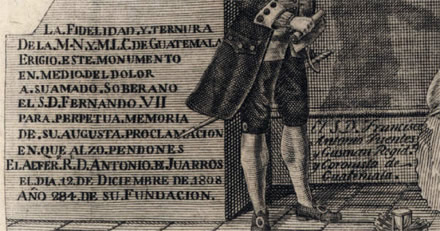 LA. FIDELIDAD. Y. TERNURA
DE LA. M. N. Y. M. L. C. DE GUATEMALA
ERIGIO. ESTE. MONUMENTO
EN. MEDIO. DEL DOLOR
A. SU AMADO. SOBERANO
EL. S. D. FERNANDO. VII
PARA. PERPETUA. MEMORIA
DE. SU. AUGUSTA. PROCLAMACION
EN. QUE ALZO. PENDONES
EL ALFER. R. D. ANTONIO. JUARROS
EL DIA. 12. DE DICIEMBRE DE 1808
AÑO 284 DE SU. FUNDACION.
S. D. Francisco
Antonio
y Guzman
y Coronista de
Guatemala.